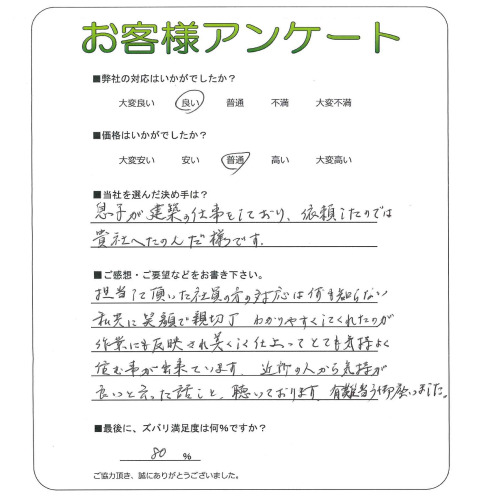 お客様アンケート
■弊社の対応はいかがでしたか？
大変良い 良い 普通 不満 大変不満
■価格はいかがでしたか？
大変安い 安い 普通 高い 大変高い
■当社を選んだ決め手は？
息子が建築の仕事をしており、依頼したのでは
貴社へたのんだ様です．
■ご感想・ご要望などをお書き下さい。
担当して頂いた社員の方の対応は何も知らない
私共に笑顔で親切丁 わかりやすくしてくれたのが
作業にも反映され美くしく仕上ってとても気持よく
住む事が出来ています． 近所の人から気持が
良いと云った話こと、聴いております．有難う御座いました。
■最後に、ズバリ満足度は何％ですか？
80 ％
ご協力頂き、誠にありがとうございました。